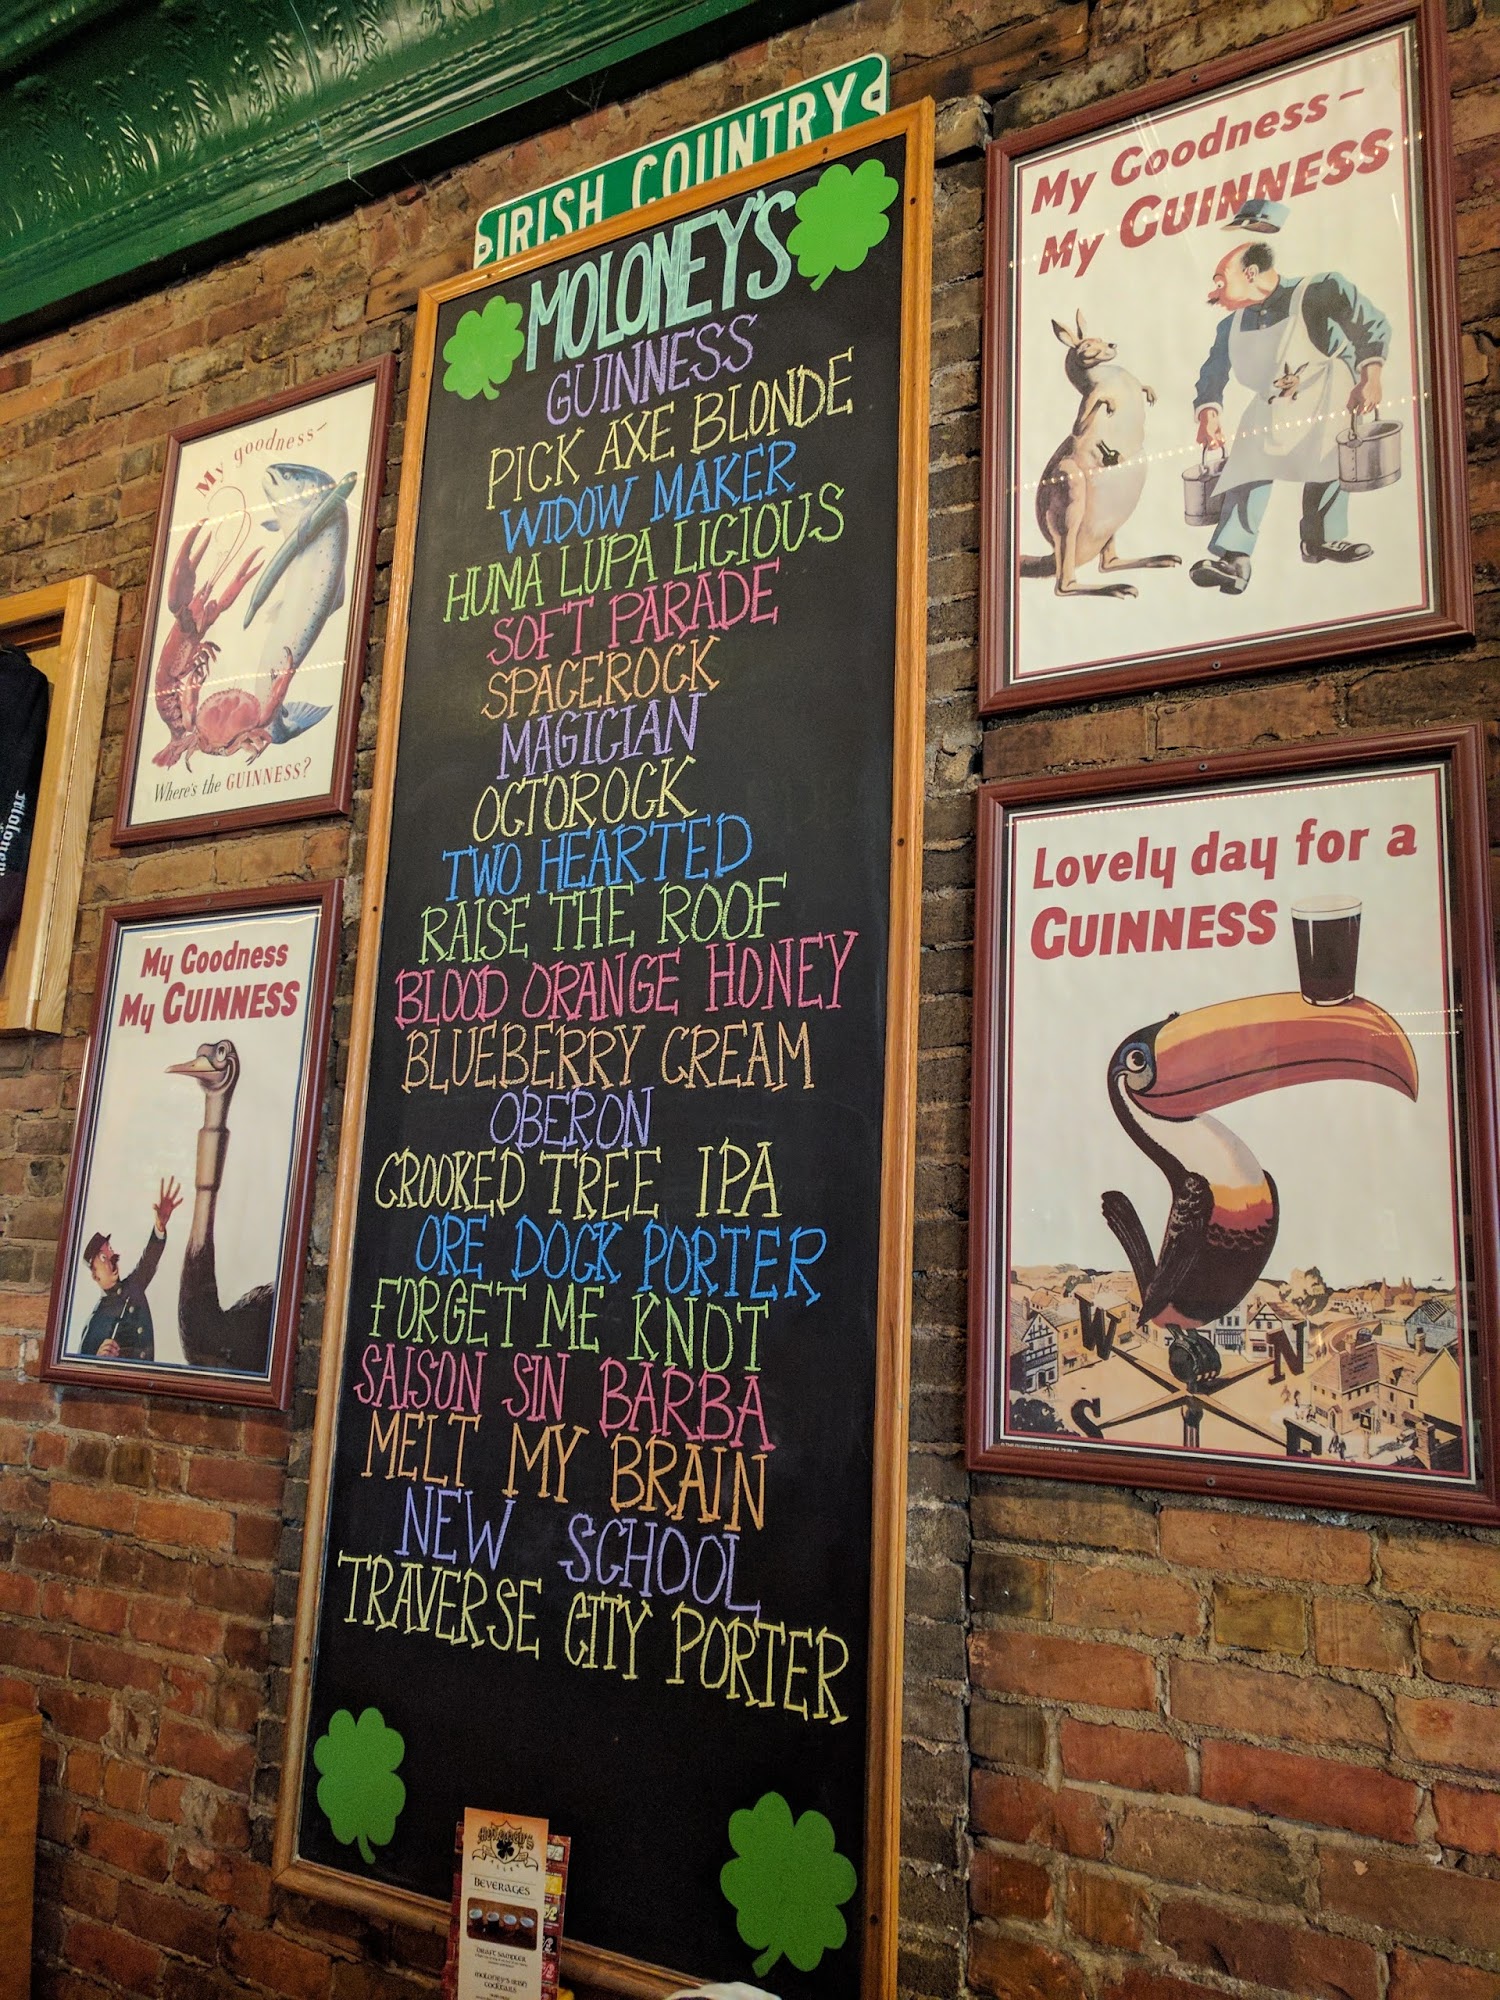 IRISH COUNTRY
MOLONEY'S
GUINNESS
PICK AXE BLONDE
WIDOW MAKER
HUMA LUPA LICIOUS
SOFT PARADE
SPACEROCK
MAGICIAN
OCTOROCK
TWO HEARTED
RAISE THE ROOF
BLOOD ORANGE HONEY
BLUEBERRY CREAM
OBERON
CROOKED TREE IPA
ORE DOCK PORTER
FORGET ME KNOT
SAISON SIN BARBA
MELT MY BRAIN
NEW SCHOOL
TRAVERSE CITY PORTER
My goodness-
Where's the GUINNESS?
My Goodness
My GUINNESS
My Goodness-
My GUINNESS
Lovely day for a
GUINNESS
W N
S
BEVERAGES
DRAFT SAMPLER
MOLONEY'S IRISH
COCKTAILS